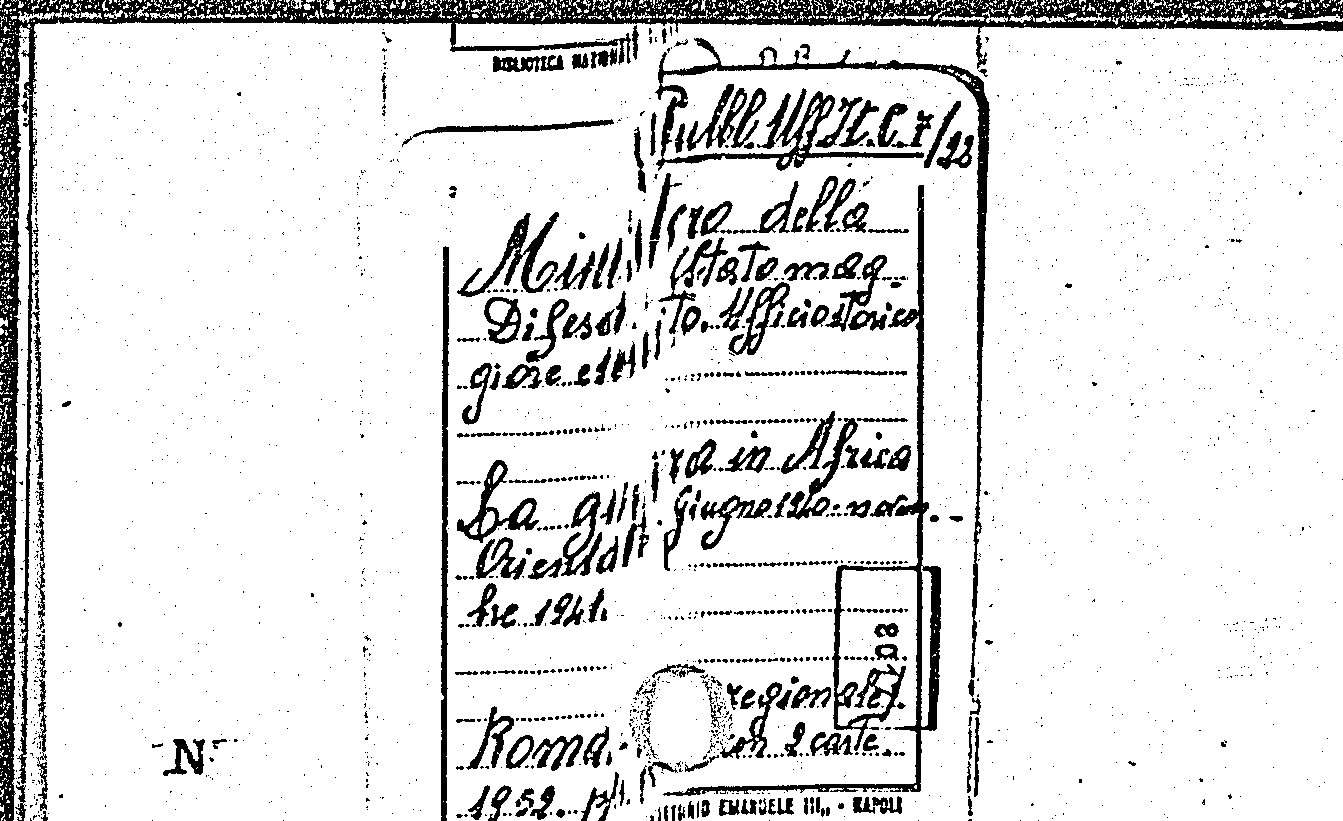 BIBLIOTECA NAZIONA
Pubb. Uff. It. C. 7/22
Ministero della
Difesa. Stato mag-
giore esercito. Ufficio storico
La guerra in Africa
Orientale. Giugno 1940-novem-
bre 1941.
Roma. regionale).
1952. con 2 carte.
VITTORIO EMANUELE III,, - NAPOLI
N